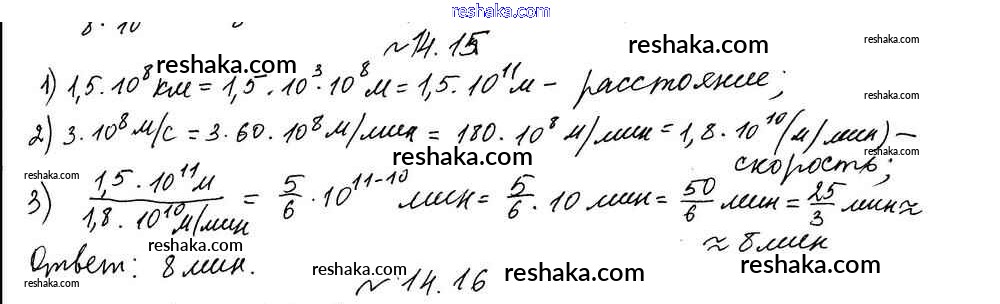 reshaka.com
8 · 10
~14.15 reshaka.com reshaka.com
reshaka.com
1) 1,5·10⁸км = 1,5·10³·10⁸м = 1,5·10¹¹м – расстояние;
reshaka.com
2) 3·10⁸м/с = 3·60·10⁸м/мин = 180·10⁸м/мин = 1,8·10¹⁰(м/мин) –
reshaka.com reshaka.com скорость;
reshaka.com
3) 1,5·10¹¹м / 1,8·10¹⁰м/мин = 5/6·10¹¹⁻¹⁰ мин = 5/6·10 мин = 50/6 мин = 25/3 мин ≈
reshaka.com
≈ 8 мин
reshaka.com reshaka.com
Ответ: 8 мин.
reshaka.com reshaka.com reshaka.com
reshaka.com ~14.16